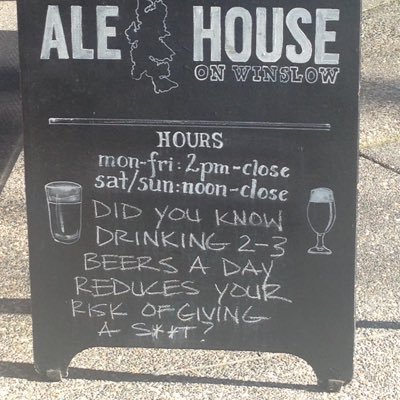 ALE HOUSE
ON WINSLOW
HOURS
mon-fri: 2pm-close
sat/sun: noon-close
DID YOU KNOW
DRINKING 2-3
BEERS A DAY
REDUCES YOUR
RISK OF GIVING
A S**T?